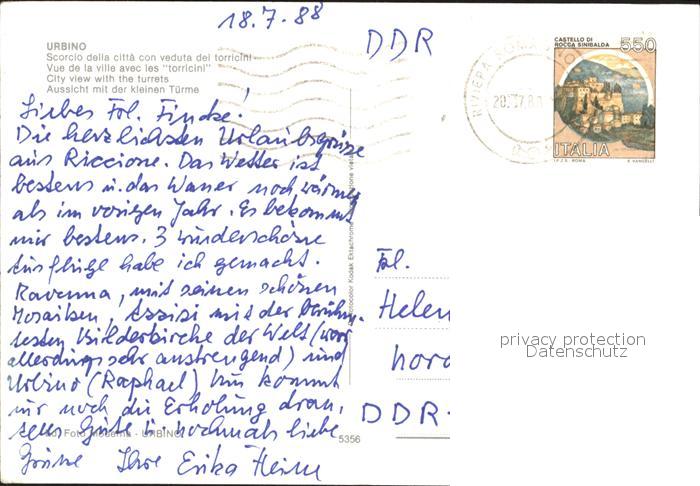 18.7.88
DDR
URBINO
Scorcio della città con veduta dei torricini
Vue de la ville avec les "torricini"
City view with the turrets
Aussicht mit der kleinen Türme
CASTELLO DI
ROCCA SINIBALDA
550
ITALIA
I.P.Z.S. - ROMA
E. VANGELLI
RIVIERA
Liebes Frl. Fincke!
Die herzlichsten Urlaubsgrüsse
aus Riccione. Das Wetter ist
bestens u. das Wasser noch wärmer
als im vorigen Jahr. Es bekommt
mir bestens. 3 wunderschöne
Ausflüge habe ich gemacht.
Ravenna, mit seinen schönen
Mosaiken, Assisi mit der berühm-
testen Bilderkirche der Welt (war
allerdings sehr anstrengend) und
Urbino (Raphael) Nun kommt
nur noch die Erholung dran,
alles Gute u. nochmals liebe
Grüsse Ihre Erika
Frl.
Helen
nord
DDR-
color Kodak Ektachrome
Foto - URBINO
5356
privacy protection
Datenschutz